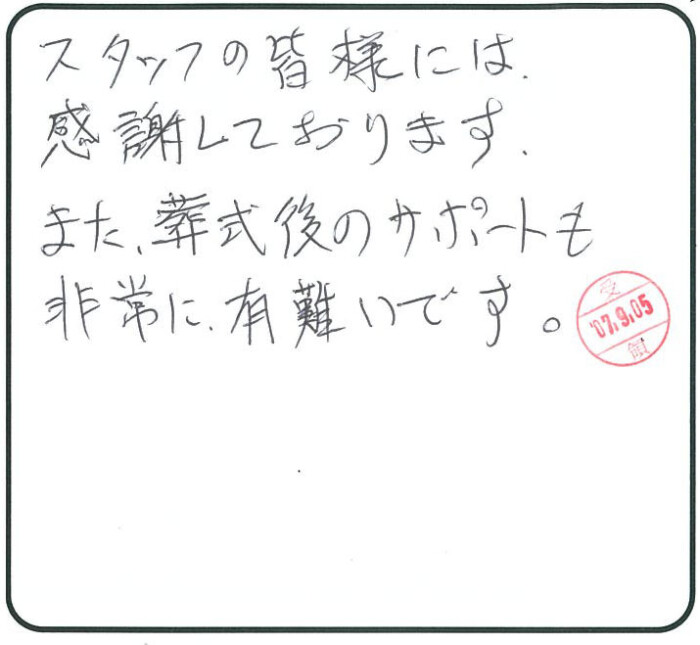 スタッフの皆様には、
感謝しております。
また、葬式後のサポートも
非常に、有難いです。
'07.9.05